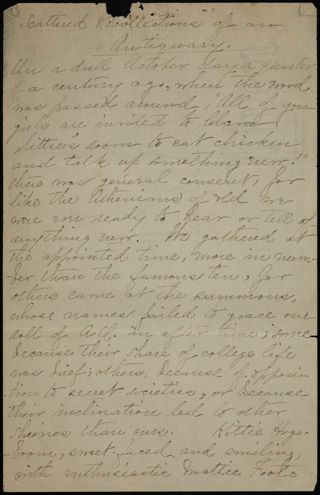 Scattered Recollections of an
Antiquary.
On a dull October day a quarter
of a century ago, when the word
was passed around, "All of you
girls are invited to Clara
room to eat chicken
and talk up something new."
there was general consent, for
like the Athenians of old we
were all ready to hear or tell of
anything new. We gathered at
the appointed time, more in num-
ber than the famous ten, for
others came at the summons,
whose names failed to grace our
roll of in after time; some
because their share of college life
was brief; others, because of opposi-
tion to secret societies, or because
their inclination led to other
shrines than ours. Kittie Hogs-
broom, sweet-faced and smiling,
with enthusiastic Mattie Foote